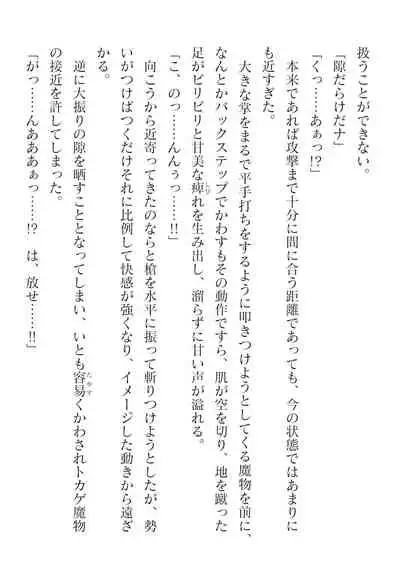 扱うことができない。
「隙だらけだナ」
「くっ……あぁっ!?」
本来であれば攻撃まで十分に間に合う距離であっても、今の状態ではあまりに
も近すぎた。
大きな掌をまるで平手打ちをするように叩きつけようとしてくる魔物を前に、
なんとかバックステップでかわすもその動作ですら、肌が空を切り、地を蹴った
足がビリビリと甘美な痺れを生み出し、溜らずに甘い声が溢れる。
「こ、のっ……んんぅっ……!!」
向こうから近寄ってきたのならと槍を水平に振って斬りつけようとしたが、勢
いがつけばつくだけそれに比例して快感が強くなり、イメージした動きから遠ざ
かる。
逆に大振りの隙を晒すこととなってしまい、いとも容易くかわされトカゲ魔物
の接近を許してしまった。
「がっ……んあああぁっ……!?　は、放せ……!!」